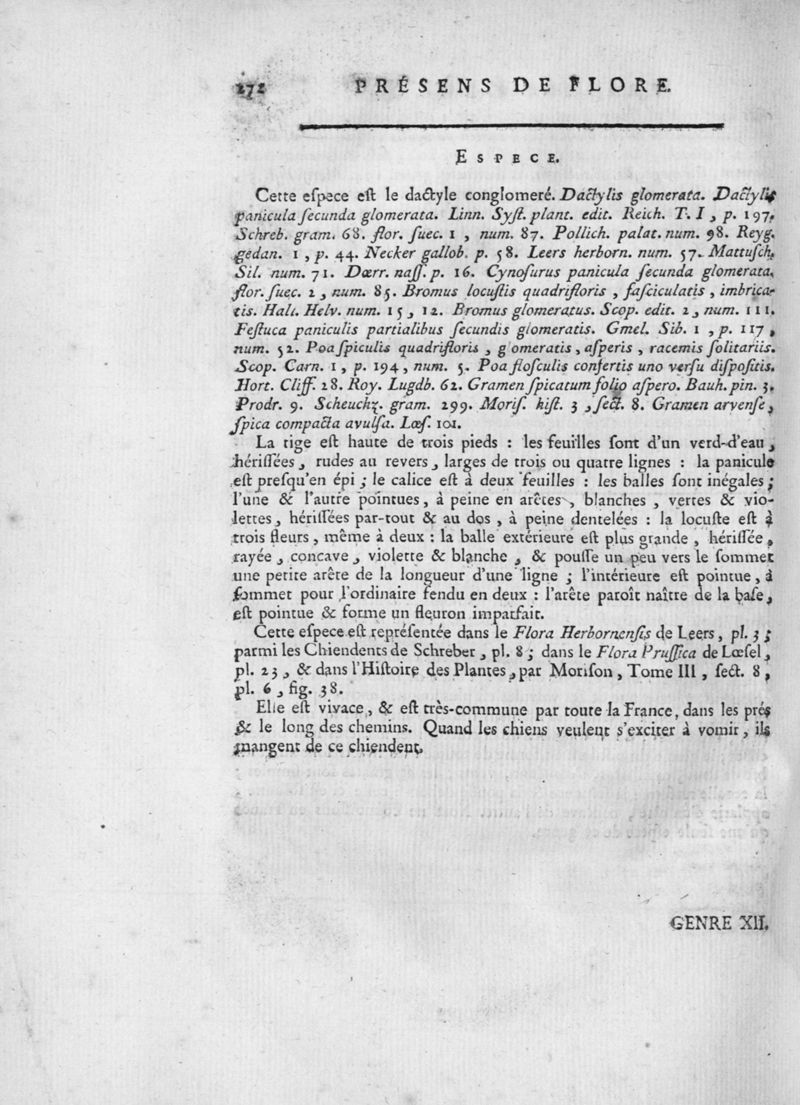 272 PRÉSENS DE FLORE.
ESPECE.
Cette eſpece eſt le dactyle conglomeré. Dactylis glomerata. Dactylis
panicula ſecunda glomerata. Linn. Syſt. plant. edit. Reich. T. I, p. 197.
Schreb. gram. 68. flor. ſuec. 1, num. 87. Pollich. palat. num. 98. Reyg.
gedan. 1, p. 44. Necker gallob. p. 58. Leers herborn. num. 57. Mattuſch.
Sil. num. 71. Dœrr. naſſ. p. 16. Cynoſurus panicula ſecunda glomerata,
flor. ſuec. 2, num. 85. Bromus locuſtis quadrifloris, faſciculatis, imbrica-
tis. Hall. Helv. num. 15, 12. Bromus glomeratus. Scop. edit. 2, num. 111.
Feſtuca paniculis partialibus ſecundis glomeratis. Gmel. Sib. 1, p. 117,
num. 52. Poa ſpiculis quadrifloris, g omeratis, aſperis, racemis ſolitariis.
Scop. Carn. 1, p. 194, num. 5. Poa floſculis confertis uno verſu diſpoſitis.
Hort. Cliff. 28. Roy. Lugdb. 62. Gramen ſpicatum folio aſpero. Bauh. pin. 3.
Prodr. 9. Scheuchz. gram. 299. Moriſ. hiſt. 3, ſect. 8. Gramen arvenſe,
ſpica compacta avulſa. Lœſ. 101.
La tige eſt haute de trois pieds : les feuilles ſont d'un verd-d'eau,
hériſſées, rudes au revers, larges de trois ou quatre lignes : la panicule
eſt preſqu'en épi ; le calice eſt à deux feuilles : les balles ſont inégales ;
l'une & l'autre pointues, à peine en arêtes, blanches, vertes & vio-
lettes, hériſſées par-tout & au dos, à peine dentelées : la locuſte eſt à
trois fleurs, même à deux : la balle extérieure eſt plus grande, hériſſée,
rayée, concave, violette & blanche, & pouſſe un peu vers le ſommet
une petite arête de la longueur d'une ligne ; l'intérieure eſt pointue, à
ſommet pour l'ordinaire fendu en deux : l'arête paroît naître de la baſe,
eſt pointue & forme un fleuron imparfait.
Cette eſpece eſt repréſentée dans le Flora Herbornenſis de Leers, pl. 3 ;
parmi les Chiendents de Schreber, pl. 8 ; dans le Flora Pruſſica de Lœſel,
pl. 23, & dans l'Hiſtoire des Plantes, par Moriſon, Tome III, ſect. 8,
pl. 6, fig. 38.
Elle eſt vivace, & eſt très-commune par toute la France, dans les prés
& le long des chemins. Quand les chiens veulent s'exciter à vomir, ils
mangent de ce chiendent.
GENRE XII.